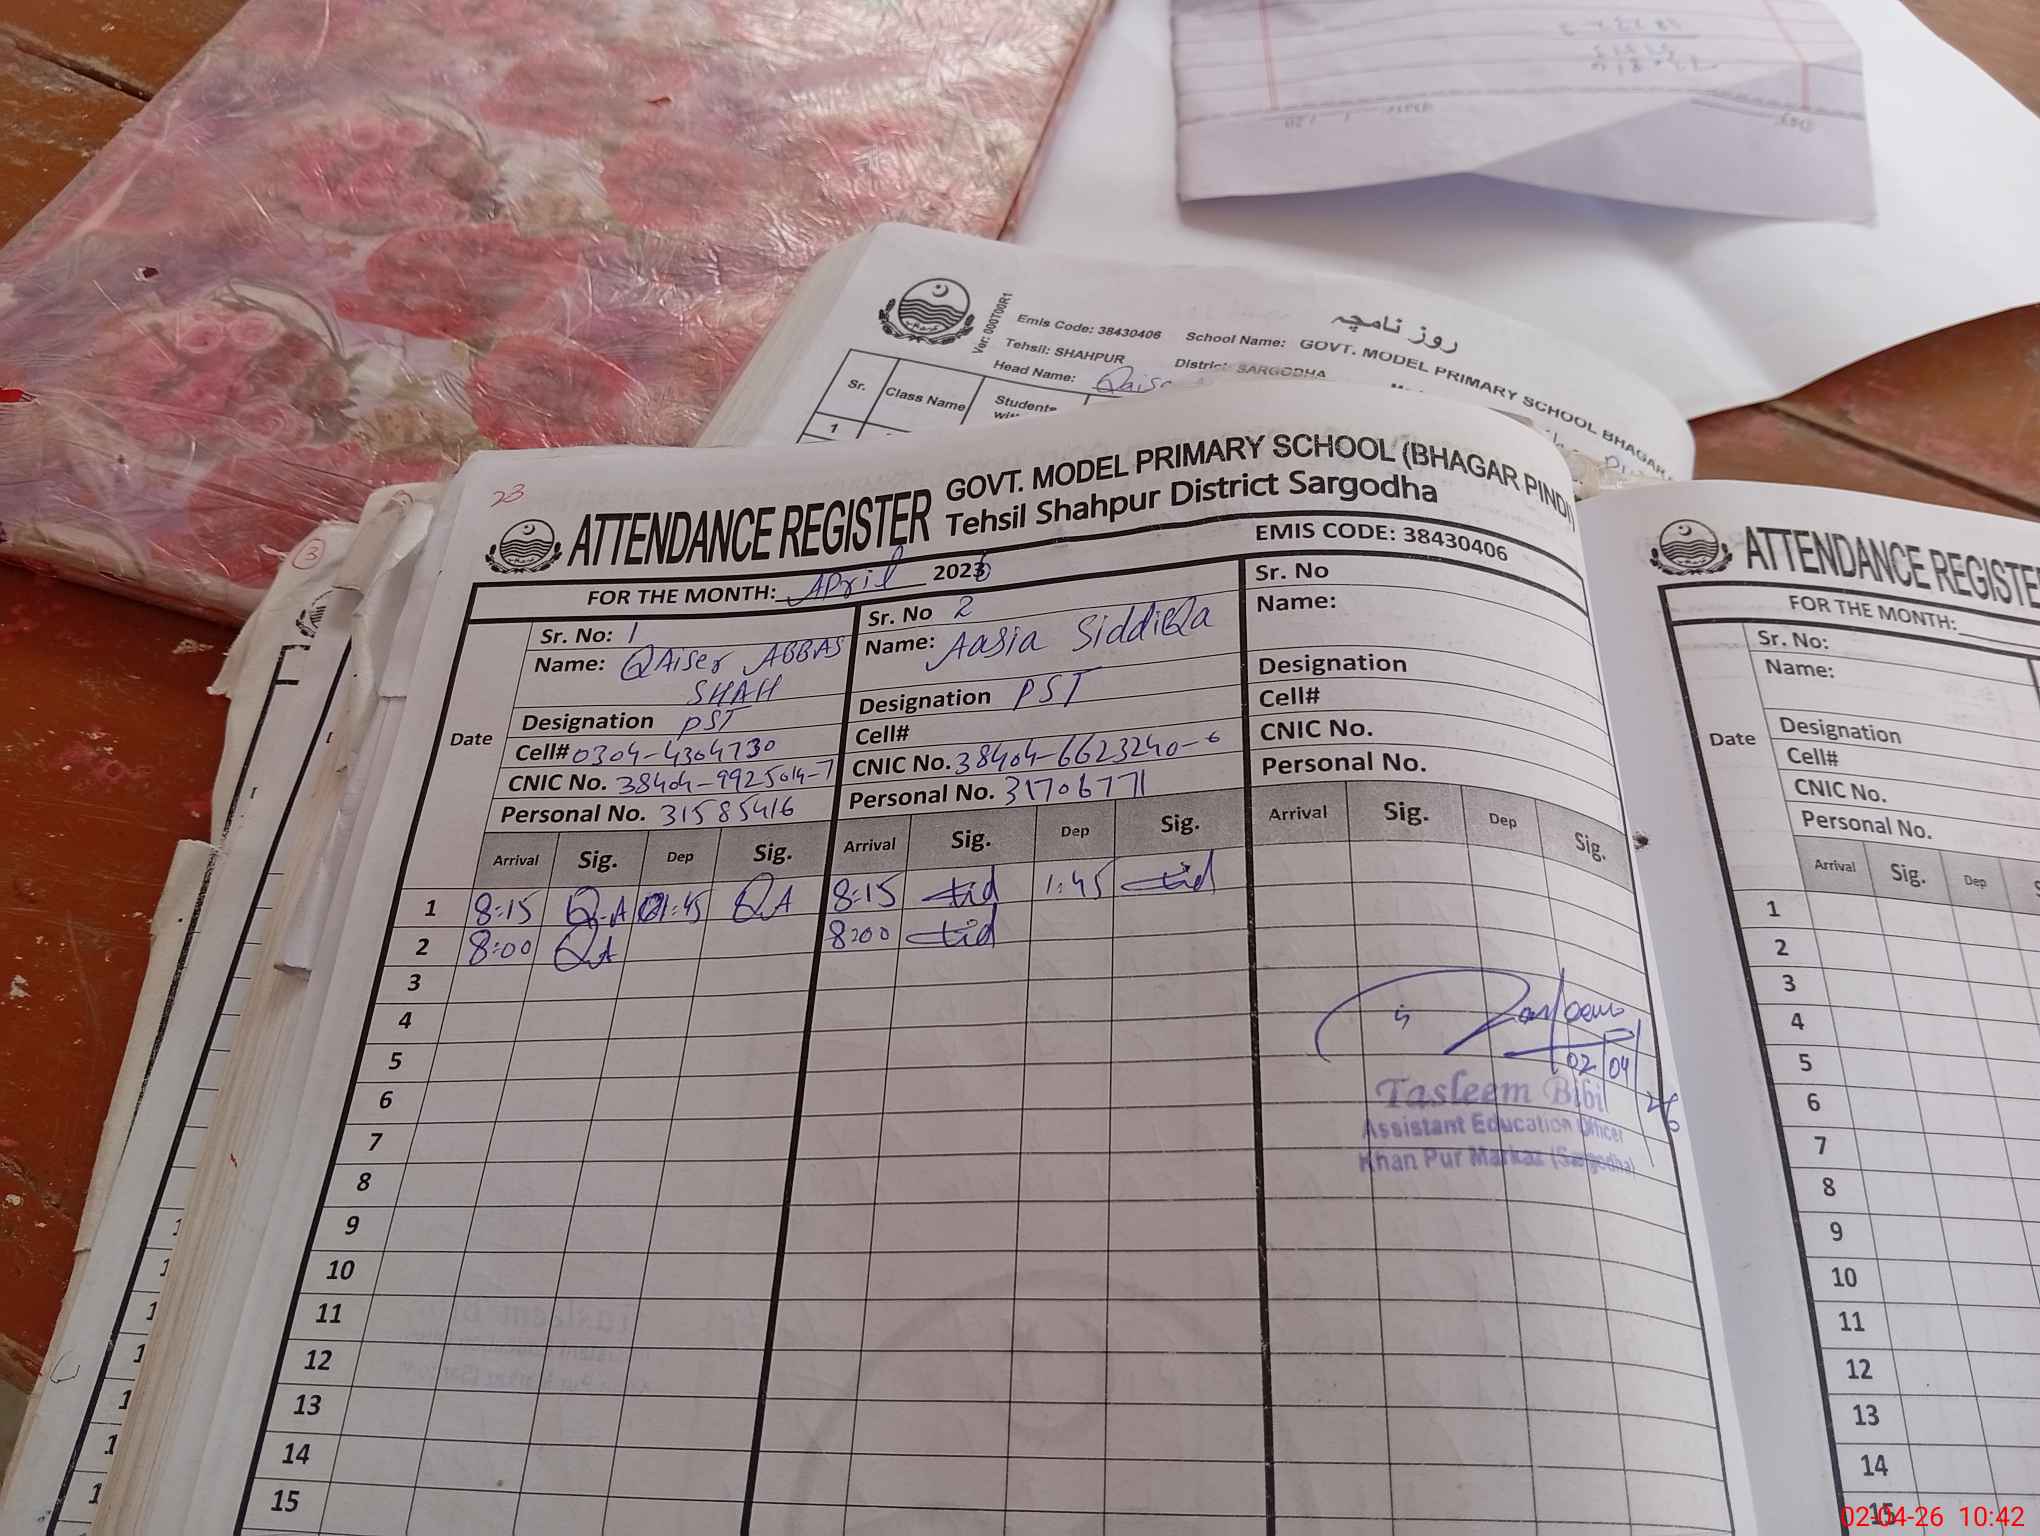 Ver: 000T00R1
روز نامچہ
Emis Code: 38430406 School Name: GOVT. MODEL PRIMARY SCHOOL BHAGAR
Tehsil: SHAHPUR District: SARGODHA
Head Name: Qaiser
Sr. Class Name Students
1
23
ATTENDANCE REGISTER GOVT. MODEL PRIMARY SCHOOL (BHAGAR PIND)
Tehsil Shahpur District Sargodha
FOR THE MONTH: April 2026 EMIS CODE: 38430406
Date
Sr. No: 1
Name: QAiser ABBAS
SHAH
Designation PST
Cell# 0304-4304730
CNIC No. 38404-9925014-7
Personal No. 31585416
Sr. No 2
Name: Aasia SiddiQa
Designation PST
Cell#
CNIC No. 38404-6623240-6
Personal No. 31706771
Sr. No
Name:
Designation
Cell#
CNIC No.
Personal No.
Arrival Sig. Dep Sig. Arrival Sig. Dep Sig. Arrival Sig. Dep Sig.
1 8:15 Q.A 01:45 QA 8:15 1:45
2 8:00 QA 8:00
3
4
5
6
7
8
9
10
11
12
13
14
15
Tasleem
02/04/26
Tasleem Bibi
Assistant Education Officer
Khan Pur Markaz (Sargodha)
3
ATTENDANCE REGISTE
FOR THE MONTH:
Date
Sr. No:
Name:
Designation
Cell#
CNIC No.
Personal No.
Arrival Sig. Dep
1
2
3
4
5
6
7
8
9
10
11
12
13
14
15
02-04-26 10:42